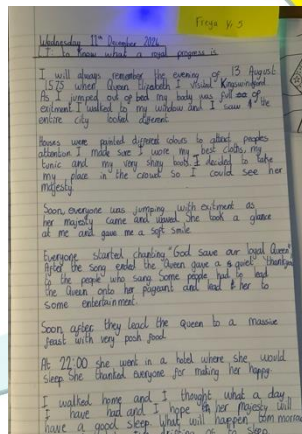 Freya Yr 5
Wednesday 11th December 2024
LI: to know what a royal progress is
I will always remember the evening of 13 August
1575 when Queen Elizabeth I visited Kingswinford.
As I jumped out of bed my body was full of
exitment I walked to my window and I saw the
entire city looked different.
Houses were painted different colours to attract peoples
attention I made sure I wore my best cloths, my
tunic and my very shiny boots. I decided to take
my place in the crowd so I could see her
majesty.
Soon, everyone was jumping with exitment as
her majesty came and waved. She took a glance
at me and gave me a soft smile.
Everyone started chanting "God save our loyal Queen"
After the song ended the Queen gave a quiet thankyou
to the people who sang. Some people had to lead
the Queen onto her pageant and lead her to
some entertainment.
Soon after, they lead the Queen to a massive
feast with very posh food.
At 22:00 she went in a hotel where she would
sleep. She thanked everyone for making her happy.
I walked home and I thought what a day
I have had and I hope her majesty will
have a good sleep. What will happen tomorrow
to sleep